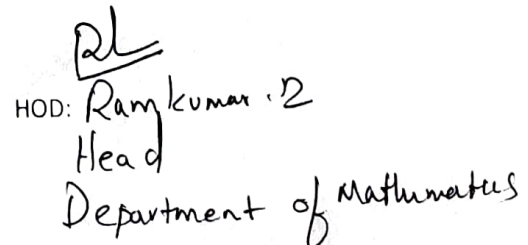 HOD: Ramkumar . R
Head
Department of Mathematics